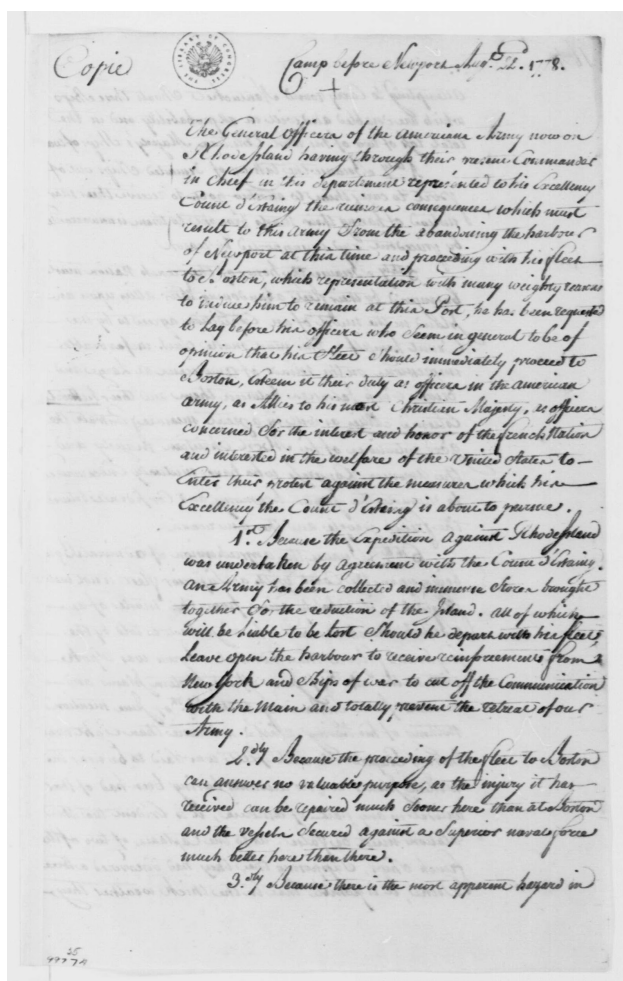 Copie
Camp before Newport Augt. 22. 1778.
The General Officers of the American Army now on
Rhode Island having through their Commander
in Chief in this department represented to his Excellency
Count d'Estaing the ruinous consequences which must
result to this Army From the abandoning the harbour
of Newport at this time and proceeding with his fleet
to Boston, which representation with many weighty reasons
to induce him to remain at this Port, he has been requested
to Lay before his officers who Seem in general to be of
opinion that his Fleet Should immediately proceed to
Boston, Esteem it their Duty as officers in the american
army, as Allies to his most Christian Majesty, as officers
concerned For the interest and honor of the french Nation
and interested in the welfare of the United States to
Enter their protest against the measures which his
Excellency the Count d'Estaing is about to pursue.
1st. Because the Expedition against Rhode Island
was undertaken by agreement with the Count d'Estaing.
an Army has been collected and immense Stores brought
together For the reduction of the Island. all of which
will be liable to be lost Should he depart with his fleet,
Leave open the harbour to receive reinforcements from
New York and Ships of war to cut off the Communication
with the Main and totally prevent the retreat of our
Army.
2.dly Because the proceeding of the fleet to Boston
can answer no valuable purpose, as the injury it has
received can be repaired much Sooner here than at Boston
and the vessels Secured against a Superior naval force
much better here than there.
3.dly Because there is the most apparent hazard in